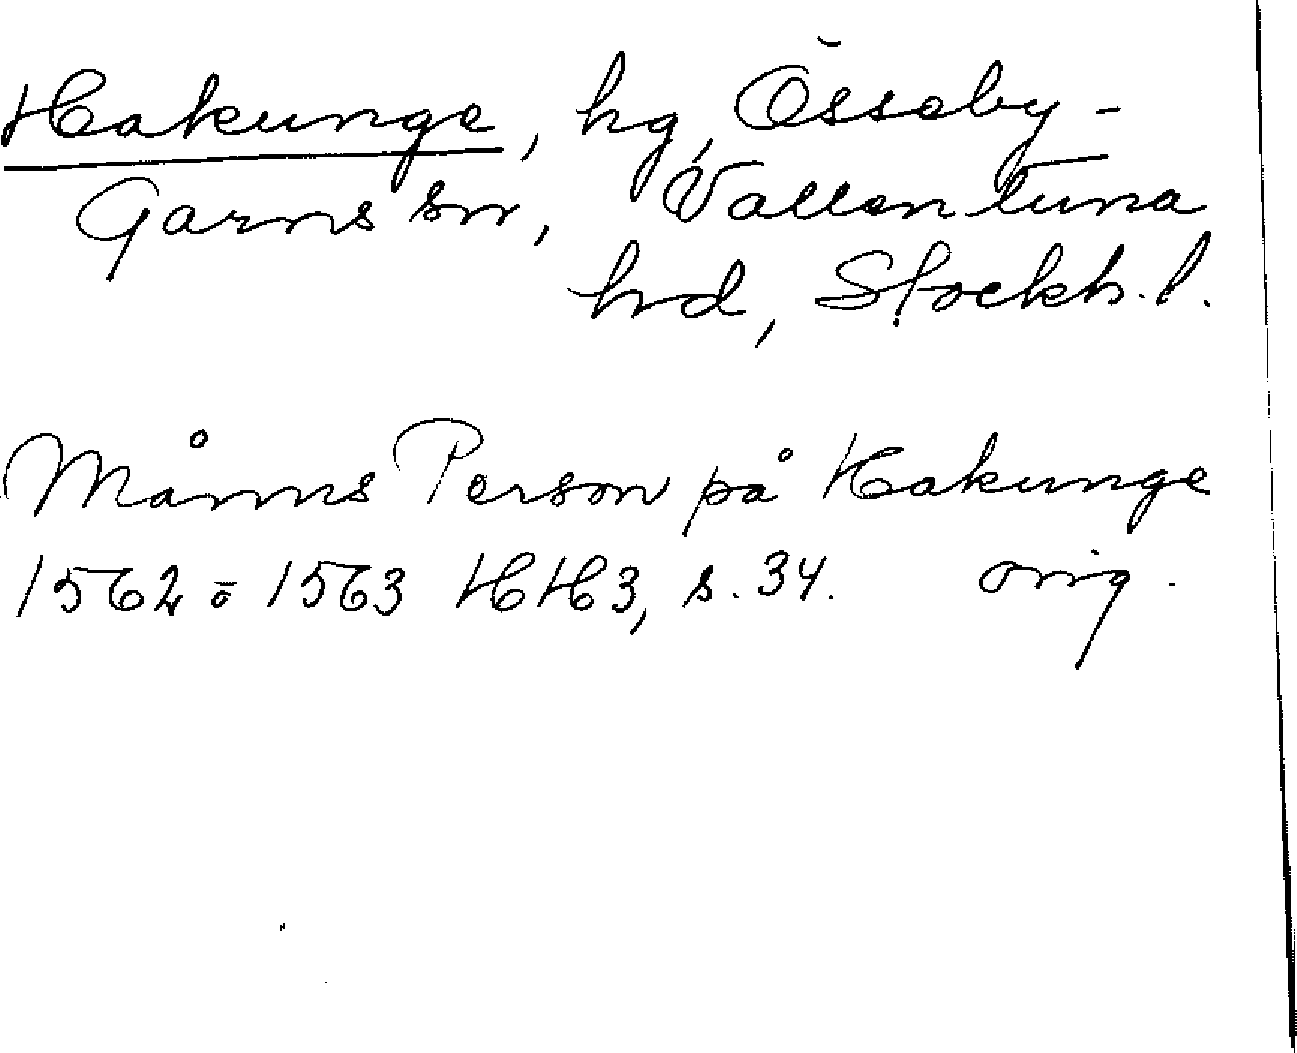 Hakunge, hg, Össeby-
Garns sn, Vallentuna
hrd, Stockh. l.
Måns Person på Hakunge
1562 o 1563 HH3, s. 34. orig.